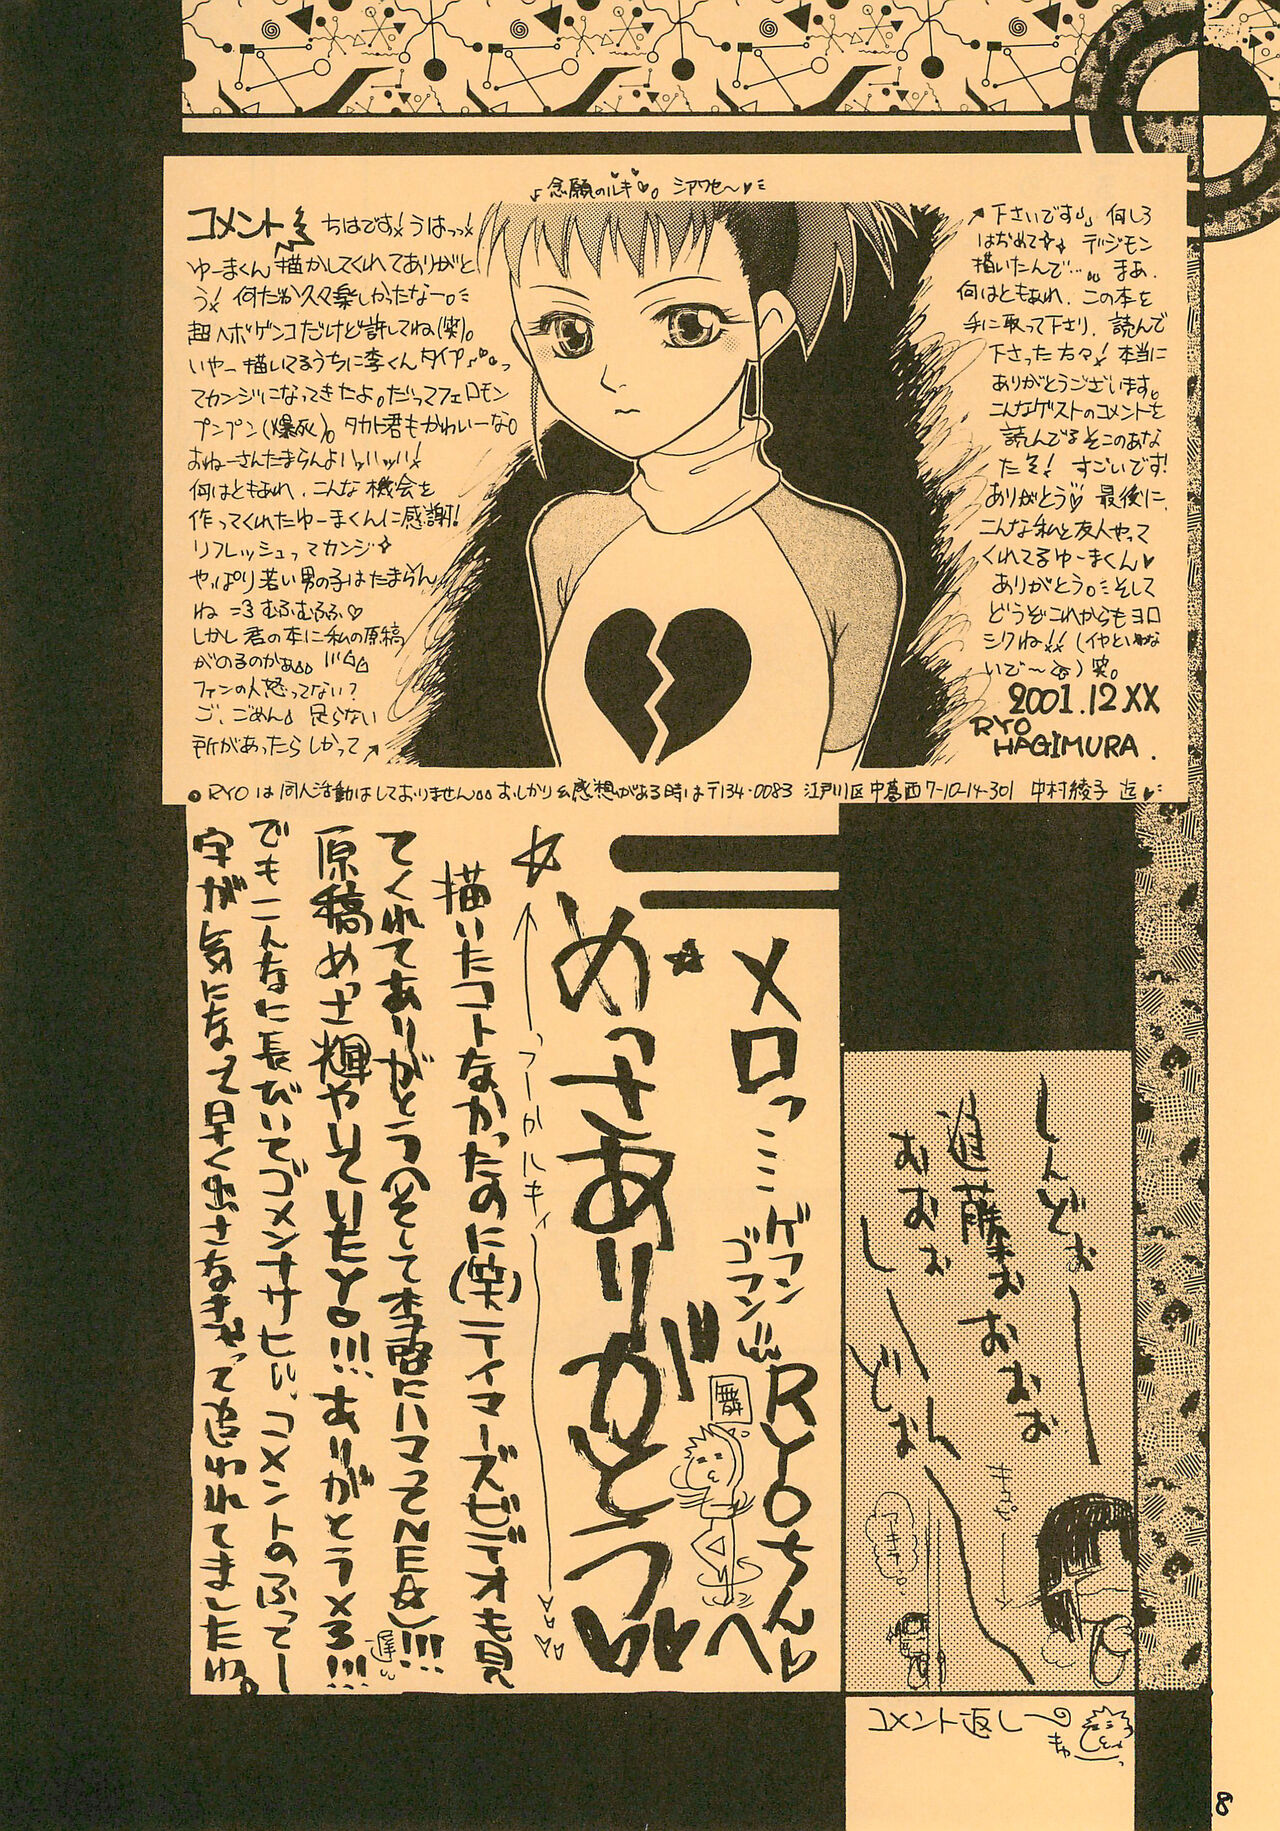 ♪念願のルキ♥。シアワセ〜♥
コメント
ちはです!うはっっ!
ゆーまくん描かしてくれてありがと
う!何だか久々楽しかったなー。
超ヘボゲンコだけど許してね(笑)。
いやー描いてるうちに李くんタイプ♪っ
てカンジになってきたよ。だってフェロモン
プンプン(爆死)。タカト君もかわいーな。
おねーさんたまらんよハッハッハッ!
何はともあれ、こんな機会を
作ってくれたゆーまくんに感謝!
リフレッシュってカンジ
やっぱり若い男の子はたまらん
ね=3 むふむふふ♡
しかし君の本に私の原稿
がのるのかぁ
ファンの人怒ってない?
ご、ごめん 足らない
所があったらしかって
下さいです 何しろ
はぢめて デジモン
描いたんで… まあ、
何はともあれ、この本を
手に取って下さり、読んで
下さった方々!本当に
ありがとうございます。
こんなゲストのコメントを
読んでるそこのあな
たを!すごいです!
ありがとう♡最後に、
こんな私と友人やって
くれてるゆーまくん♥
ありがとう。そして
どうぞこれからもヨロ
シクね!!(イヤといわな
いで〜)笑。
2001.12XX
RYO
HAGIMURA.
●RYOは同人活動はしておりません おしかり&感想がある時は〒134-0083 江戸川区中葛西7-10-14-301 中村綾子 迄
しんどぉー
進藤ぉぉぉぉぉぉ
むおぉぉ
しーんどぉー
メロっ…ゲフンゴフン
RYOちんへ
舞
☆めっさありがとう
っつーかルキィ
描いたコトなかったのに(笑)テイマーズビデオも見
てくれてありがとう(そして李啓にハマってNE☆)!!!
遅
原稿めっさ輝やいていたYO!!!ありがとうメろ!!!
でもこんなに長びいてゴメンナサヒ コメントのふってー
字が気になって早く出さなきゃって思われてましたわ。
コメント返し〜
きゅーっ
8